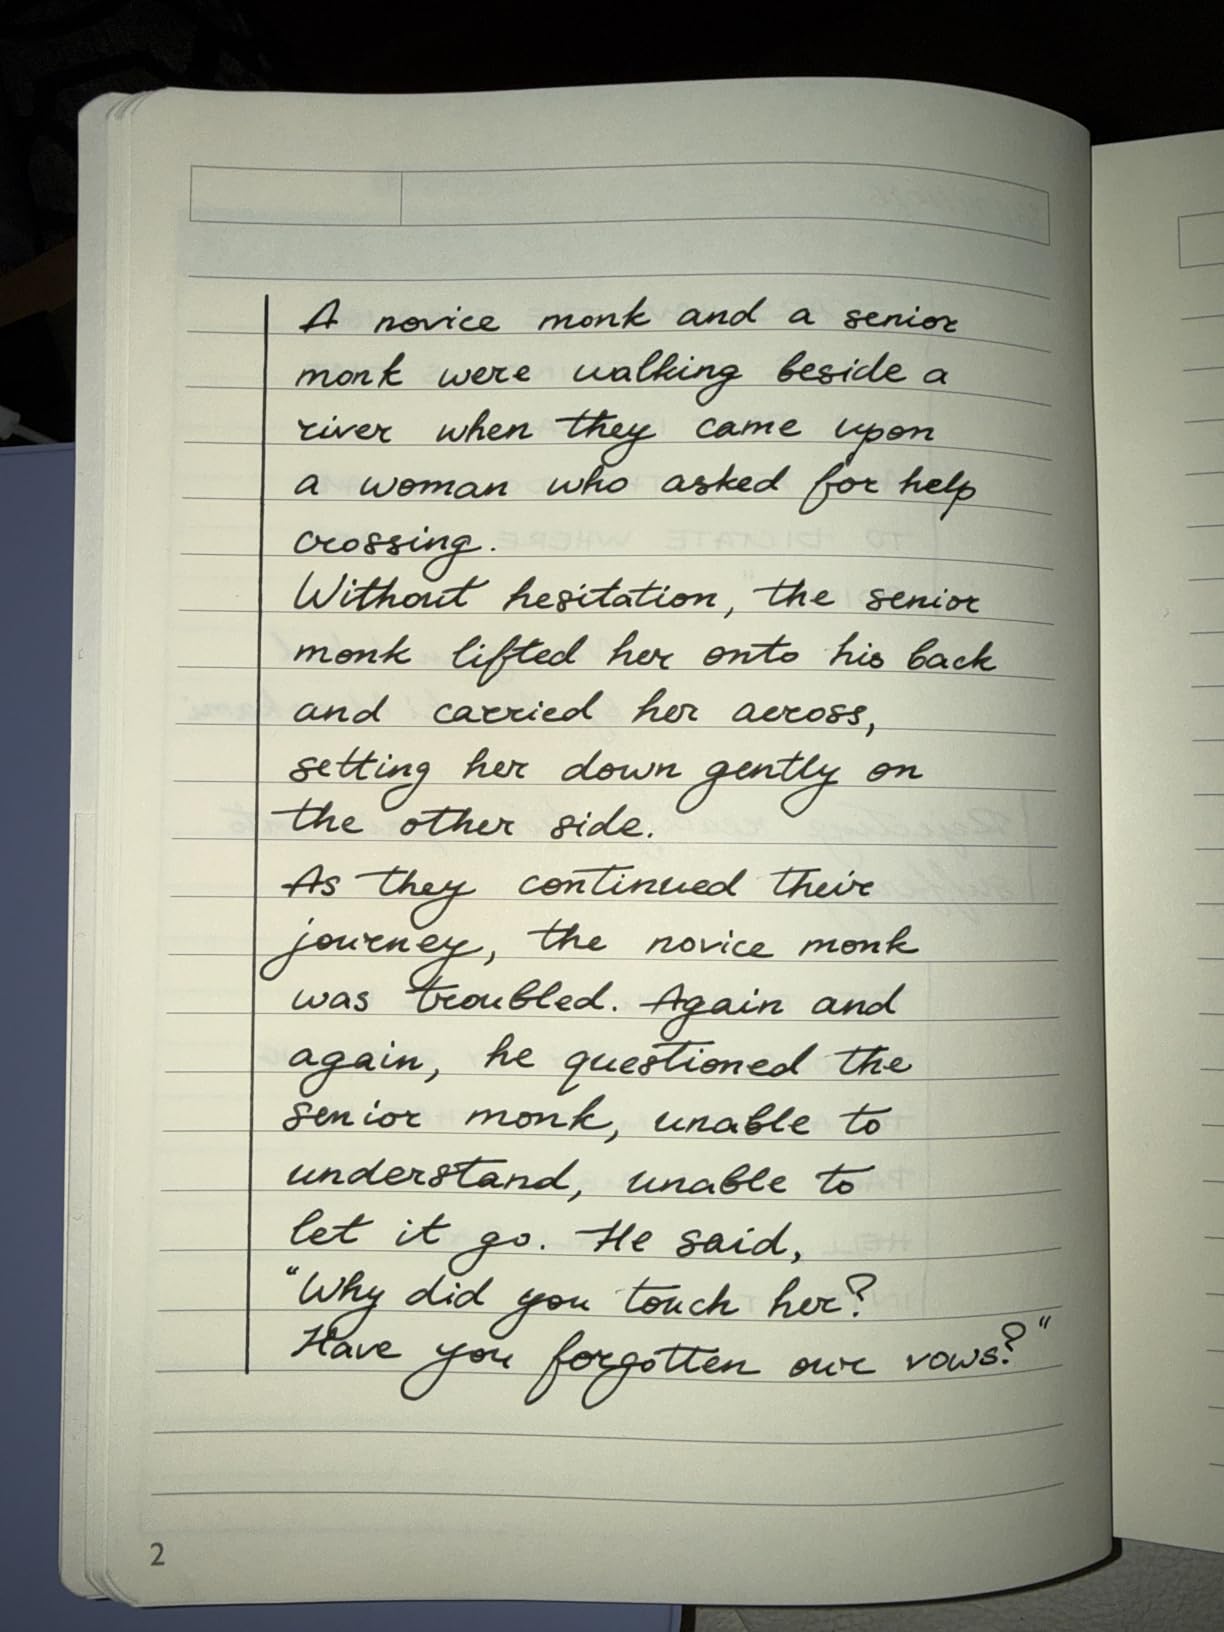 A novice monk and a senior
monk were walking beside a
river when they came upon
a woman who asked for help
crossing.
Without hesitation, the senior
monk lifted her onto his back
and carried her across,
setting her down gently on
the other side.
As they continued their
journey, the novice monk
was troubled. Again and
again, he questioned the
senior monk, unable to
understand, unable to
let it go. He said,
"Why did you touch her?
Have you forgotten our vows?"
2